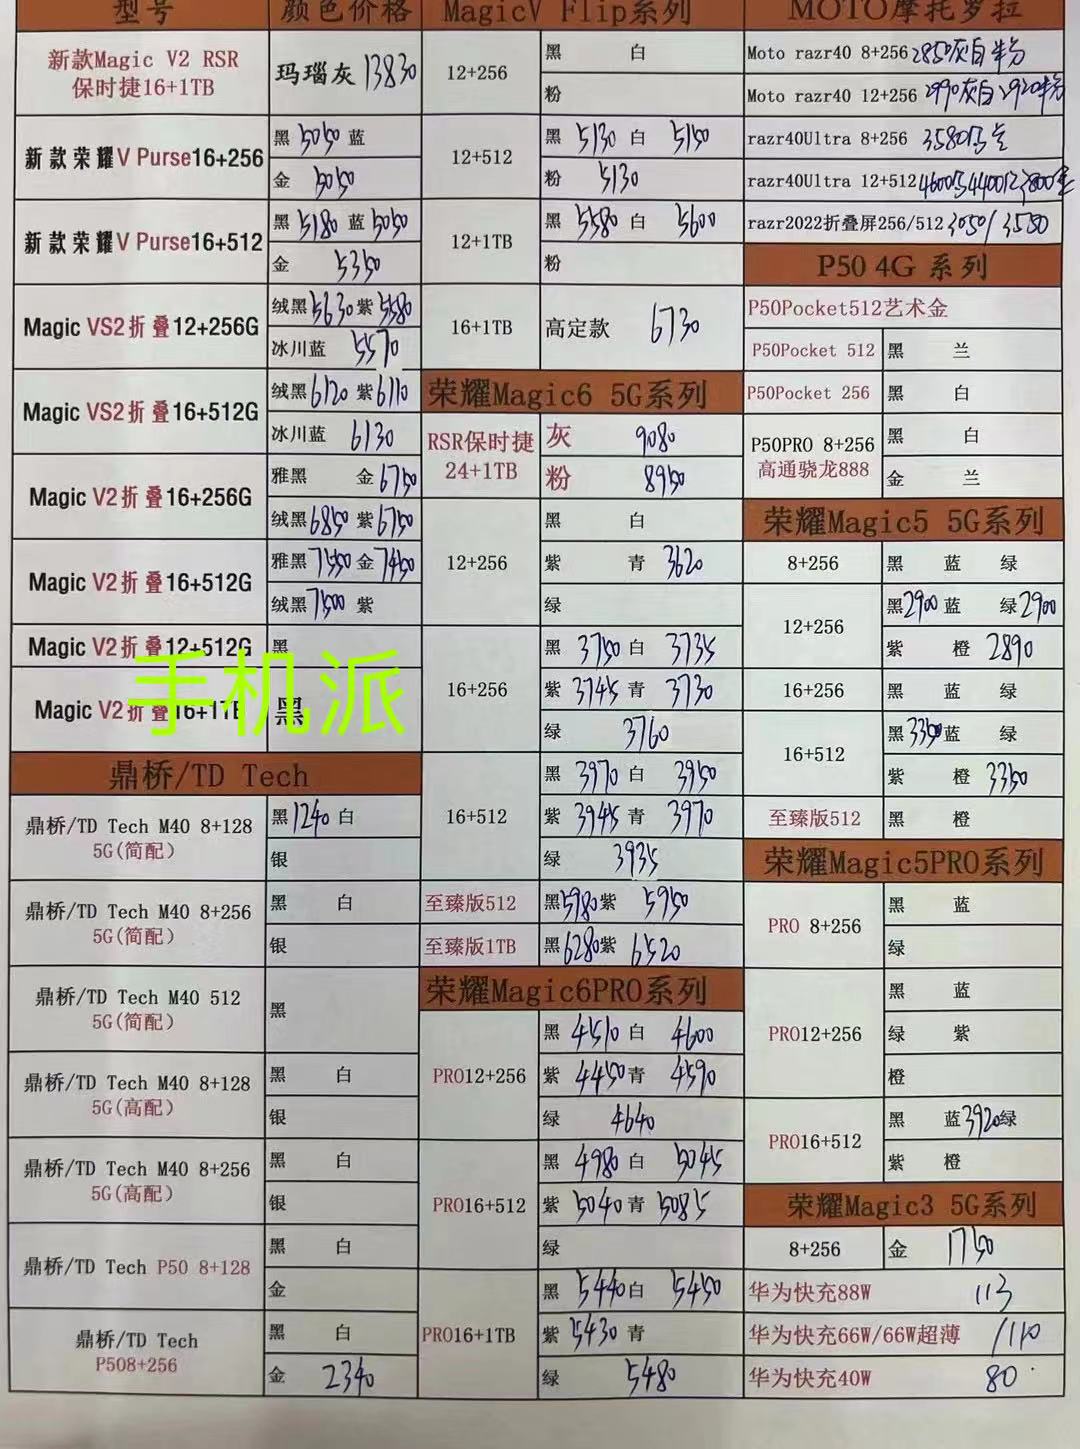 型号 颜色价格
新款Magic V2 RSR
保时捷16+1TB
玛瑙灰 13830
新款荣耀V Purse16+256
黑 5050 蓝
金 5050
新款荣耀V Purse16+512
黑 5180 蓝 5050
金 5350
Magic VS2折叠12+256G
绒黑 5630 紫 5580
冰川蓝 5570
Magic VS2折叠16+512G
绒黑 6120 紫 6110
冰川蓝 6130
Magic V2折叠16+256G
雅黑 金 6750
绒黑 6850 紫 6750
Magic V2折叠16+512G
雅黑 7550 金 7450
绒黑 7500 紫
Magic V2折叠12+512G
黑
Magic V2折叠16+1TB
黑
手机派
鼎桥/TD Tech
鼎桥/TD Tech M40 8+128
5G(简配)
黑 1240 白
银
鼎桥/TD Tech M40 8+256
5G(简配)
黑 白
银
鼎桥/TD Tech M40 512
5G(简配)
黑
鼎桥/TD Tech M40 8+128
5G(高配)
黑 白
银
鼎桥/TD Tech M40 8+256
5G(高配)
黑 白
银
鼎桥/TD Tech P50 8+128
黑 白
金
鼎桥/TD Tech
P508+256
黑 白
金 2340
MagicV Flip系列
12+256
黑 白
粉
12+512
黑 5130 白 5150
粉 5130
12+1TB
黑 5580 白 5600
粉
16+1TB
高定款 6730
荣耀Magic6 5G系列
RSR保时捷
24+1TB
灰 9080
粉 8950
12+256
黑 白
紫 青 3620
绿
16+256
黑 3750 白 3735
紫 3745 青 3730
绿 3760
16+512
黑 3970 白 3950
紫 3945 青 3970
绿 3935
至臻版512
黑 5980 紫 5950
至臻版1TB
黑 6280 紫 6520
荣耀Magic6PRO系列
PRO12+256
黑 4510 白 4600
紫 4450 青 4590
绿 4640
PRO16+512
黑 4980 白 5045
紫 5040 青 5085
绿
PRO16+1TB
黑 5440 白 5450
紫 5430 青
绿 5480
MOTO摩托罗拉
Moto razr40 8+256 2850灰白粉
Moto razr40 12+256 2990灰白2920粉
razr40Ultra 8+256 3580
razr40Ultra 12+512
razr2022折叠屏256/512 3050/3550
P50 4G 系列
P50Pocket512艺术金
P50Pocket 512
黑 兰
P50Pocket 256
黑 白
P50PRO 8+256
高通骁龙888
黑 白
金 兰
荣耀Magic5 5G系列
8+256
黑 蓝 绿
12+256
黑 2900 蓝 绿 2900
紫 橙 2890
16+256
黑 蓝 绿
16+512
黑 3350 蓝 绿
紫 橙 3350
至臻版512
黑 橙
荣耀Magic5PRO系列
PRO 8+256
黑 蓝
绿
PRO12+256
黑 蓝
绿 紫
橙
PRO16+512
黑 蓝 3920 绿
紫 橙
荣耀Magic3 5G系列
8+256
金 1750
华为快充88W 113
华为快充66W/66W超薄 /110
华为快充40W 80